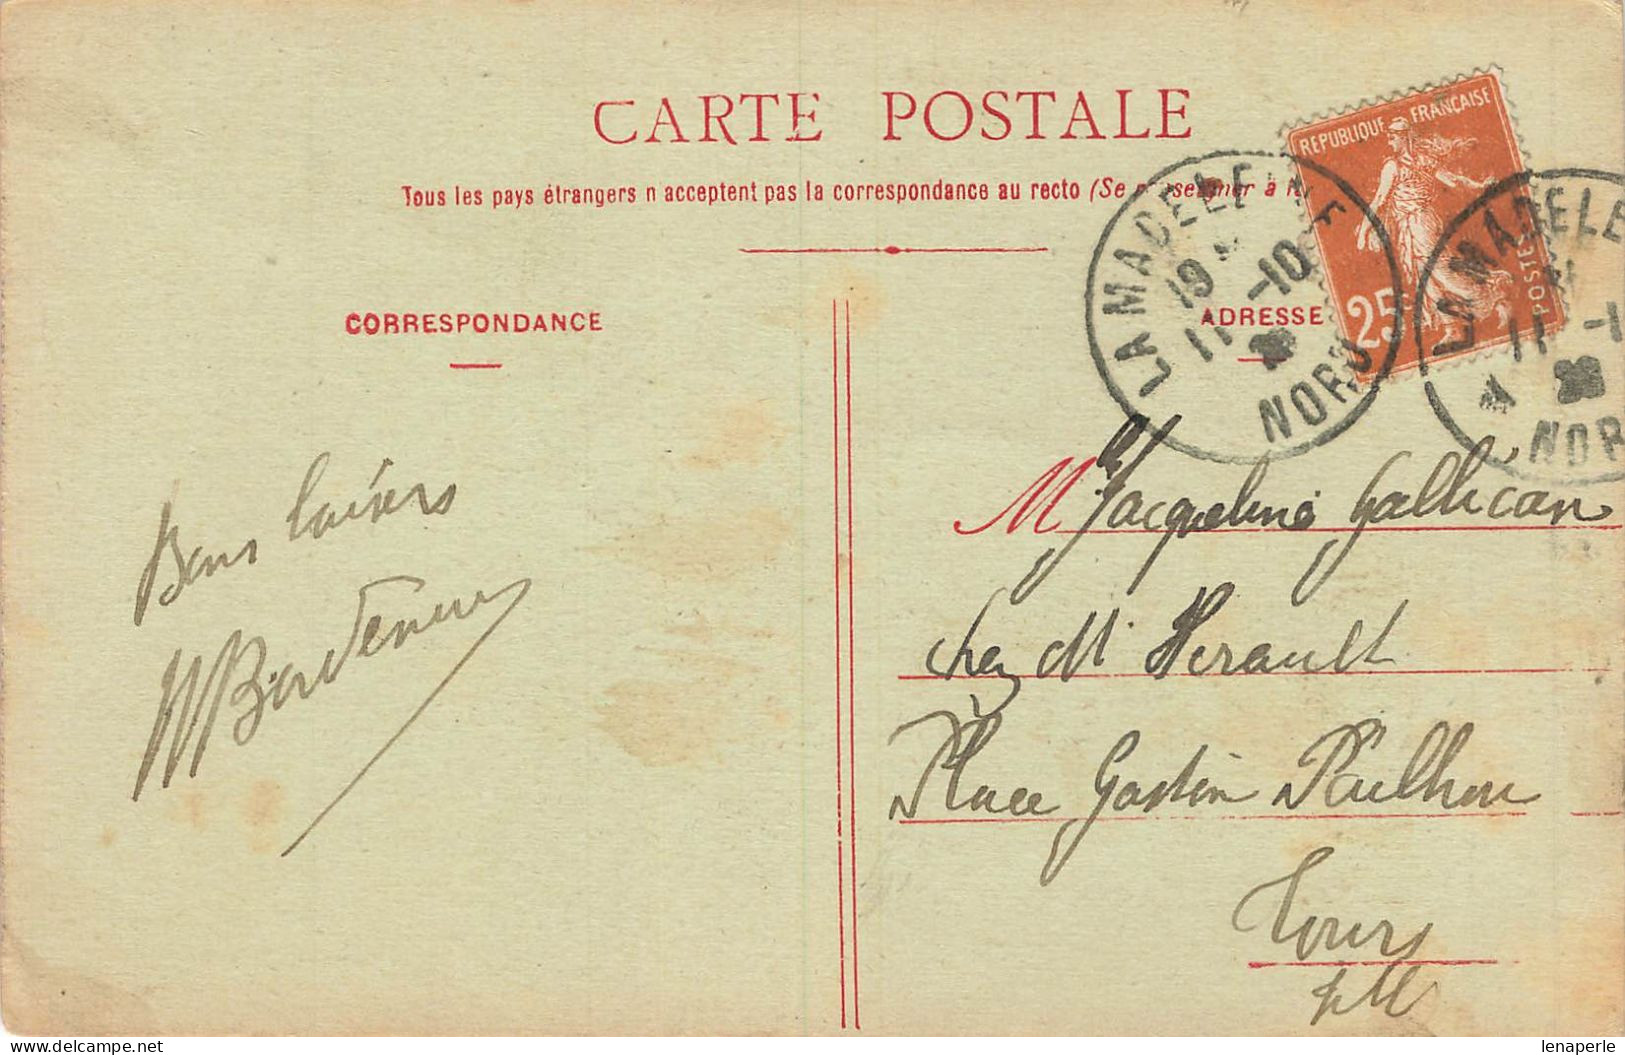 CARTE POSTALE
Tous les pays étrangers n acceptent pas la correspondance au recto (Se
CORRESPONDANCE
ADRESSE
REPUBLIQUE FRANÇAISE
POSTES
25c
LA MADELEINE
19
11 -10
NORD
LA MADELE
11 -1
NOR
Bons loisirs
M lle Jacqueline Gallican
chez M. Herault
Place Gaston Pailhou
Tours
lenaperle